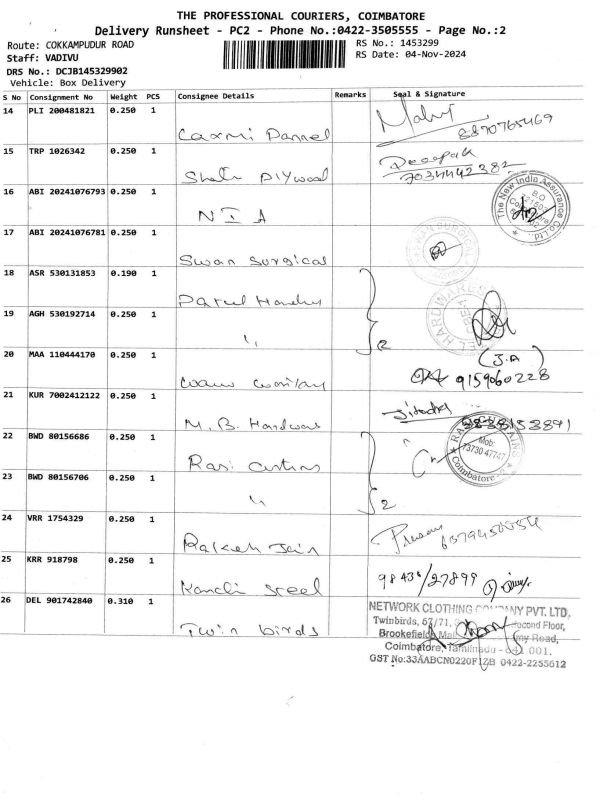 THE PROFESSIONAL COURIERS, COIMBATORE
Delivery Runsheet - PC2 - Phone No.:0422-3505555 - Page No.:2
Route: COKKAMPUDUR ROAD
RS No.: 1453299
Staff: VADIVU
RS Date: 04-Nov-2024
DRS No.: DCJB145329902
Vehicle: Box Delivery
S No Consignment No Weight PCS Consignee Details Remarks Seal & Signature
14 PLI 200481821 0.250 1 Laxmi Pannel 8870765469
15 TRP 1026342 0.250 1 Plywood Deepak 7034442382
16 ABI 20241076793 0.250 1 NIA The New India Assurance Co. Ltd.
17 ABI 20241076781 0.250 1 Swan Surgical
18 ASR 530131853 0.190 1 Patel
19 AGH 530192714 0.250 1 " 2
20 MAA 110444170 0.250 1 (J.A) 9159060228
21 KUR 7002412122 0.250 1 M.B. Hardware Jitendra
22 BWD 80156686 0.250 1 Rasi Mob: 73730 47747 Coimbatore
23 BWD 80156706 0.250 1 " 2
24 VRR 1754329 0.250 1 Rakesh Jain
25 KRR 918798 0.250 1 Kanchi Steel 98436/27899
26 DEL 901742840 0.310 1 Twin birds
NETWORK CLOTHING COMPANY PVT. LTD,
Twinbirds, 67/71, Second Floor,
Brookefield Mall, Road,
Coimbatore, Tamilnadu - 641 001.
GST No:33AABCN0220F1ZB 0422-2255612